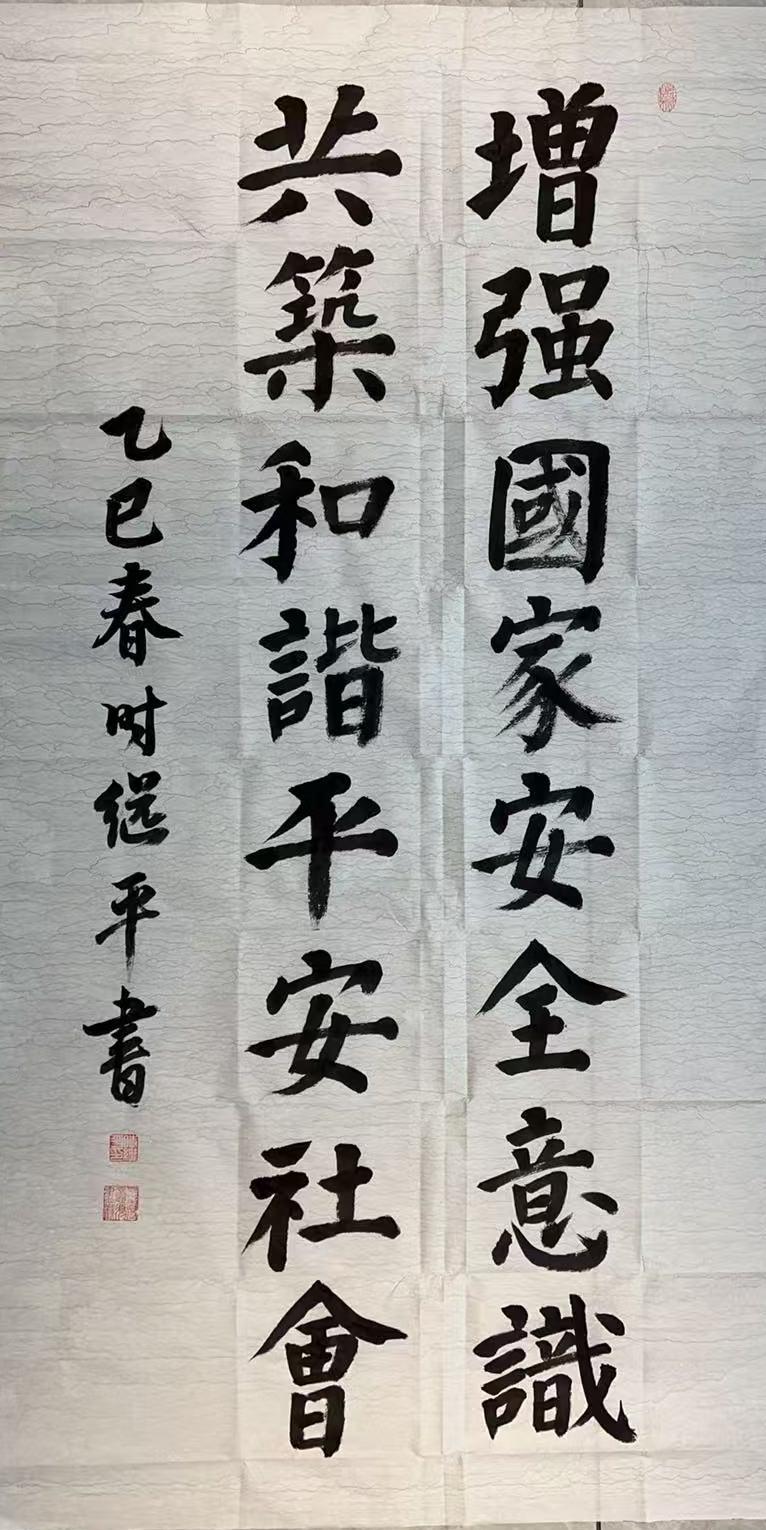 增强國家安全意識
共築和諧平安社會
乙巳春时继平書